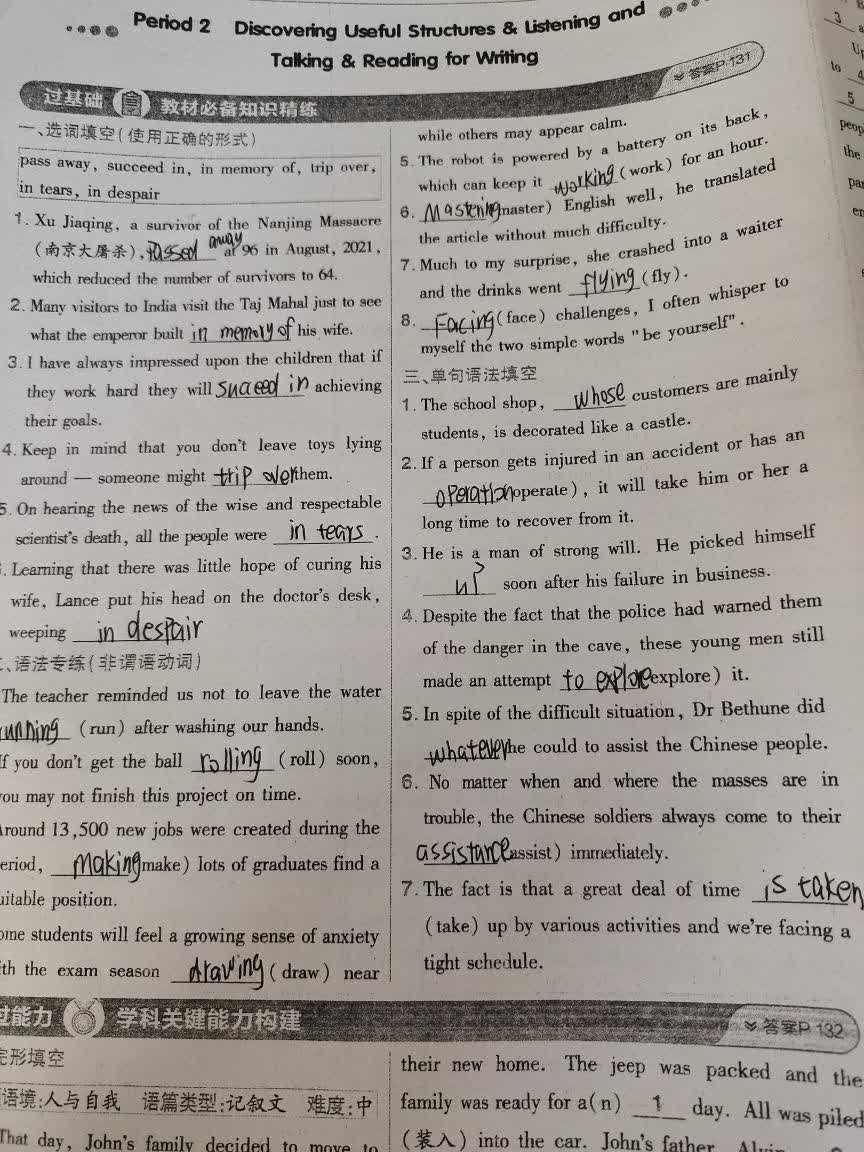 Period 2 Discovering Useful Structures & Listening and
Talking & Reading for Writing
过基础 教材必备知识精练
答案P·131
一、选词填空(使用正确的形式)
pass away, succeed in, in memory of, trip over,
in tears, in despair
1. Xu Jiaqing, a survivor of the Nanjing Massacre
(南京大屠杀), passed away at 96 in August, 2021,
which reduced the number of survivors to 64.
2. Many visitors to India visit the Taj Mahal just to see
what the emperor built in memory of his wife.
3. I have always impressed upon the children that if
they work hard they will suceed in achieving
their goals.
4. Keep in mind that you don't leave toys lying
around — someone might trip over them.
5. On hearing the news of the wise and respectable
scientist's death, all the people were in tears.
. Learning that there was little hope of curing his
wife, Lance put his head on the doctor's desk,
weeping in despair
、语法专练(非谓语动词)
The teacher reminded us not to leave the water
running (run) after washing our hands.
If you don't get the ball rolling (roll) soon,
you may not finish this project on time.
Around 13,500 new jobs were created during the
eriod, making make) lots of graduates find a
uitable position.
ome students will feel a growing sense of anxiety
ith the exam season drawing (draw) near
while others may appear calm.
5. The robot is powered by a battery on its back,
which can keep it working (work) for an hour.
6. Mastening master) English well, he translated
the article without much difficulty.
7. Much to my surprise, she crashed into a waiter
and the drinks went flying (fly).
8. Facing (face) challenges, I often whisper to
myself the two simple words "be yourself".
三、单句语法填空
1. The school shop, whose customers are mainly
students, is decorated like a castle.
2. If a person gets injured in an accident or has an
operation operate), it will take him or her a
long time to recover from it.
3. He is a man of strong will. He picked himself
up soon after his failure in business.
4. Despite the fact that the police had warned them
of the danger in the cave, these young men still
made an attempt to explore explore) it.
5. In spite of the difficult situation, Dr Bethune did
whatever he could to assist the Chinese people.
6. No matter when and where the masses are in
trouble, the Chinese soldiers always come to their
assistance assist) immediately.
7. The fact is that a great deal of time is taken
(take) up by various activities and we're facing a
tight schedule.
过能力 学科关键能力构建
答案P·132
完形填空
语境:人与自我 语篇类型:记叙文 难度:中
That day, John's family decided to move to
their new home. The jeep was packed and the
family was ready for a(n) 1 day. All was piled
(装入) into the car. John's father
3
Up
to 4
5
peop
the